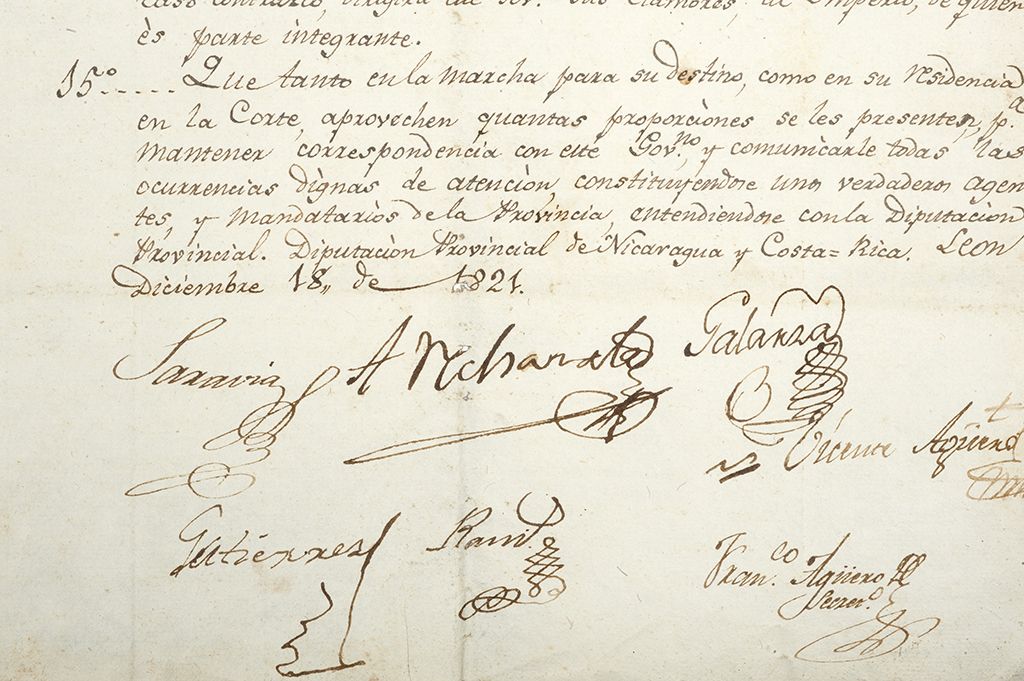 caso contrario, dirigirá al Imperio, de quien
ès parte integrante.
15º..... Que tanto en la marcha para su destino, como en su residencia
en la Corte, aprovechen quantas proporciònes se les presenten, p.ª
mantener correspondencia con este Gov.no, y comunicarle todas las
ocurrencias dignas de atenciòn, constituyendose unos verdaderos agen
tes, y mandatarios de la Provincia, entendiendose con la Diputaciòn
Provincial. Diputaciòn Provincial de Nicaragua y Costa=Rica. Leon
Diciembre 18,, de 1821.
Saravia Galarza
Vicente Agüero
Gutierrez
Fran.co Agüero
Secret.o